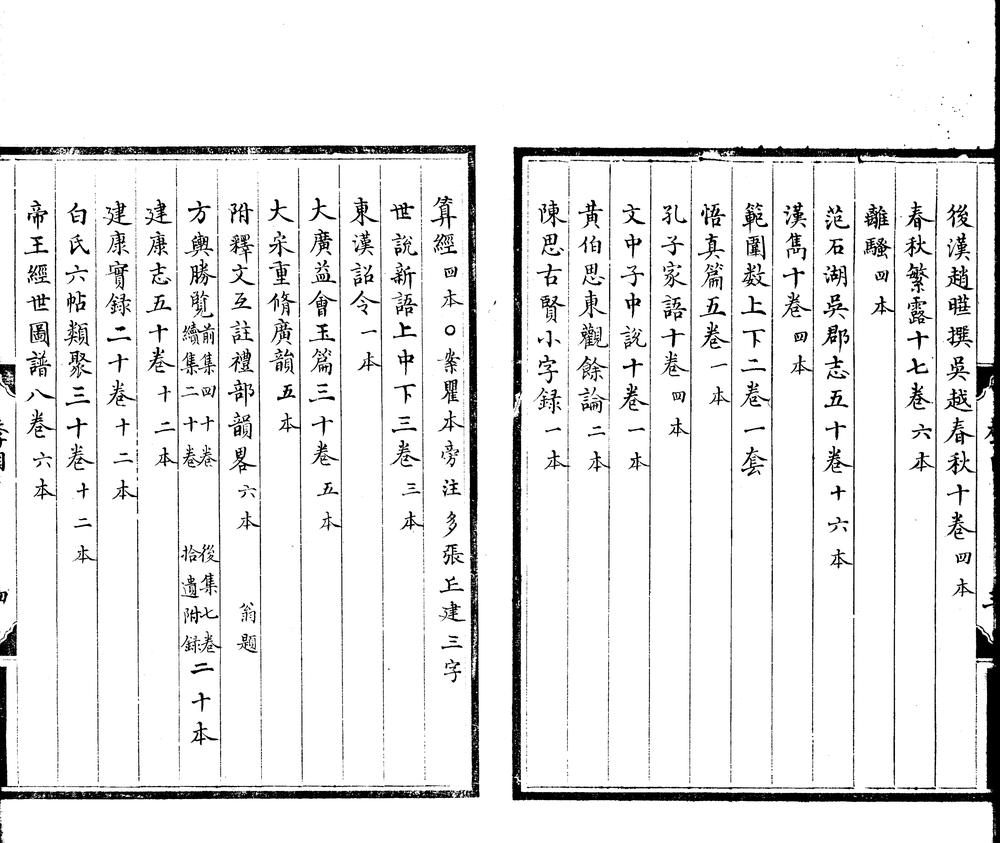 後漢趙曄撰吳越春秋十卷四本
春秋繁露十七卷六本
離騷四本
范石湖吳郡志五十卷十六本
漢雋十卷四本
範圍数上下二卷一套
悟真篇五卷一本
孔子家語十卷四本
文中子中說十卷一本
黃伯思東觀餘論二本
陳思古賢小字録一本
算經四本○案瞿本旁注多張丘建三字
世說新語上中下三卷三本
東漢詔令一本
大廣益會玉篇三十卷五本
大宋重脩廣韻五本
附釋文互註禮部韻畧六本 翁題
方輿勝覧前集四十卷續集二十卷 後集七卷拾遺附録二十本
建康志五十卷十二本
建康實録二十卷十二本
白氏六帖類聚三十卷十二本
帝王經世圖譜八卷六本